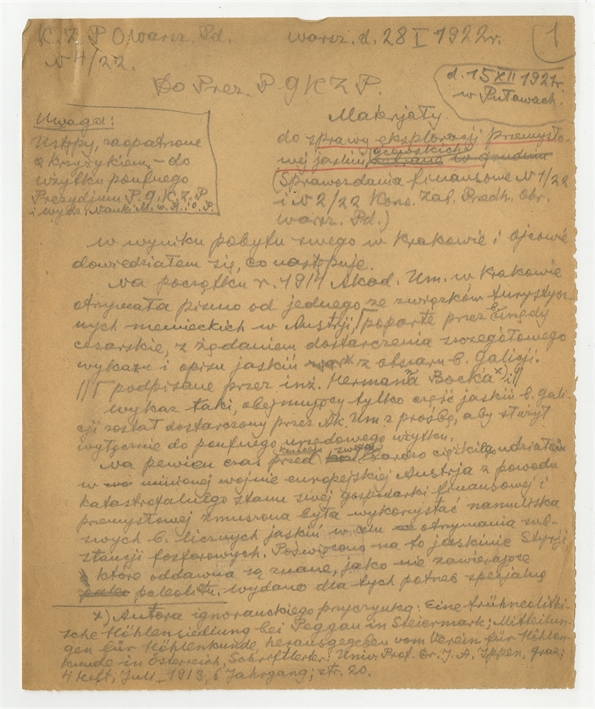 K.Z.P.O.Warsz. Pd.
warsz. d. 28 I 1922 r.
1
N 4/22.
Do Prez. P.G.K.Z.P.
d. 15 XII 1921 r.
w Puławach.
Uwaga:
Ustępy, zaopatrzone
z krzyżykiem, – do
użytku poufnego
Prezydjum P.G.K.Z.P
i wydz. Nauki M.W.R.i O.P.
Materjały
do sprawy eksploracji przemysło-
wej jaskiń ojcowskich zebrane w grudniu
(Sprawozdania finansowe N 1/22
i N 2/22 Kons. Zab. Predh. Okr.
Warsz. Pd.)
W wyniku pobytu swego w Krakowie i Ojcowie
dowiedziałem się, co następuje.
Na początku r. 1914 Akad. Um. w Krakowie
otrzymała pismo od jednego ze związków turystycz-
nych niemieckich w Austrji, poparte przez Urzędy
cesarskie, z żądaniem dostarczenia szczegółowego
wykazu i opisu jaskiń z obszaru b. Galicji.
//Γ podpisane przez inż. Hermanna Bocka x) i//
Wykaz taki, obejmujący tylko część jaskiń b. Gali-
cji został dostarczony przez Ak. Um. z prośbą, aby służył
wyłącznie do poufnego urzędowego użytku.
Na pewien czas przed końcem swego bardzo ciężkiego udziału
w minionej wojnie europejskiej Austrja z powodu
katastrofalnego stanu swej gospodarki finansowej i
przemysłowej zmuszona była wykorzystać namuliska
swych b. licznych jaskiń w celu otrzymania sub-
stancji fosforowych. Poświęcono na to jaskinie Styrji
które oddawna są znane, jako nie zawierające
paleolitu. Wydano dla tych potrzeb specjalną
x) Autora ignoranckiego przyczynku: Eine frühneolithi-
sche Höhlensiedlung bei Peggau in Steiermark; Mitteilun-
gen für Höhlenkunde, herausgegeben vom Verein für Höhlen-
kunde in Österreich, Schriftleiter: Univ. Prof. Dr. J. A. Ippen, Graz;
4 Heft, Juli 1913, 6 Jahrgang; str. 20.